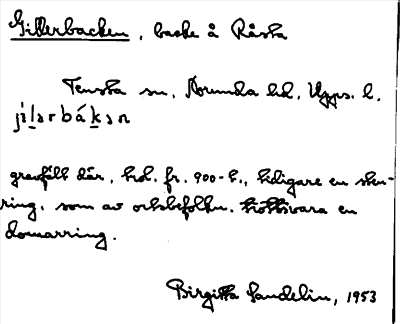 Gillerbacken, backe å Råsta
Tensta sn, Norunda hd, Upps. l.
jìlərbákən
gravfält där, trol. fr. 900-t., tidigare en sten-
ring, som av ortsbefolkn. troddes vara en
domarring.
Birgitta Sandelin, 1953